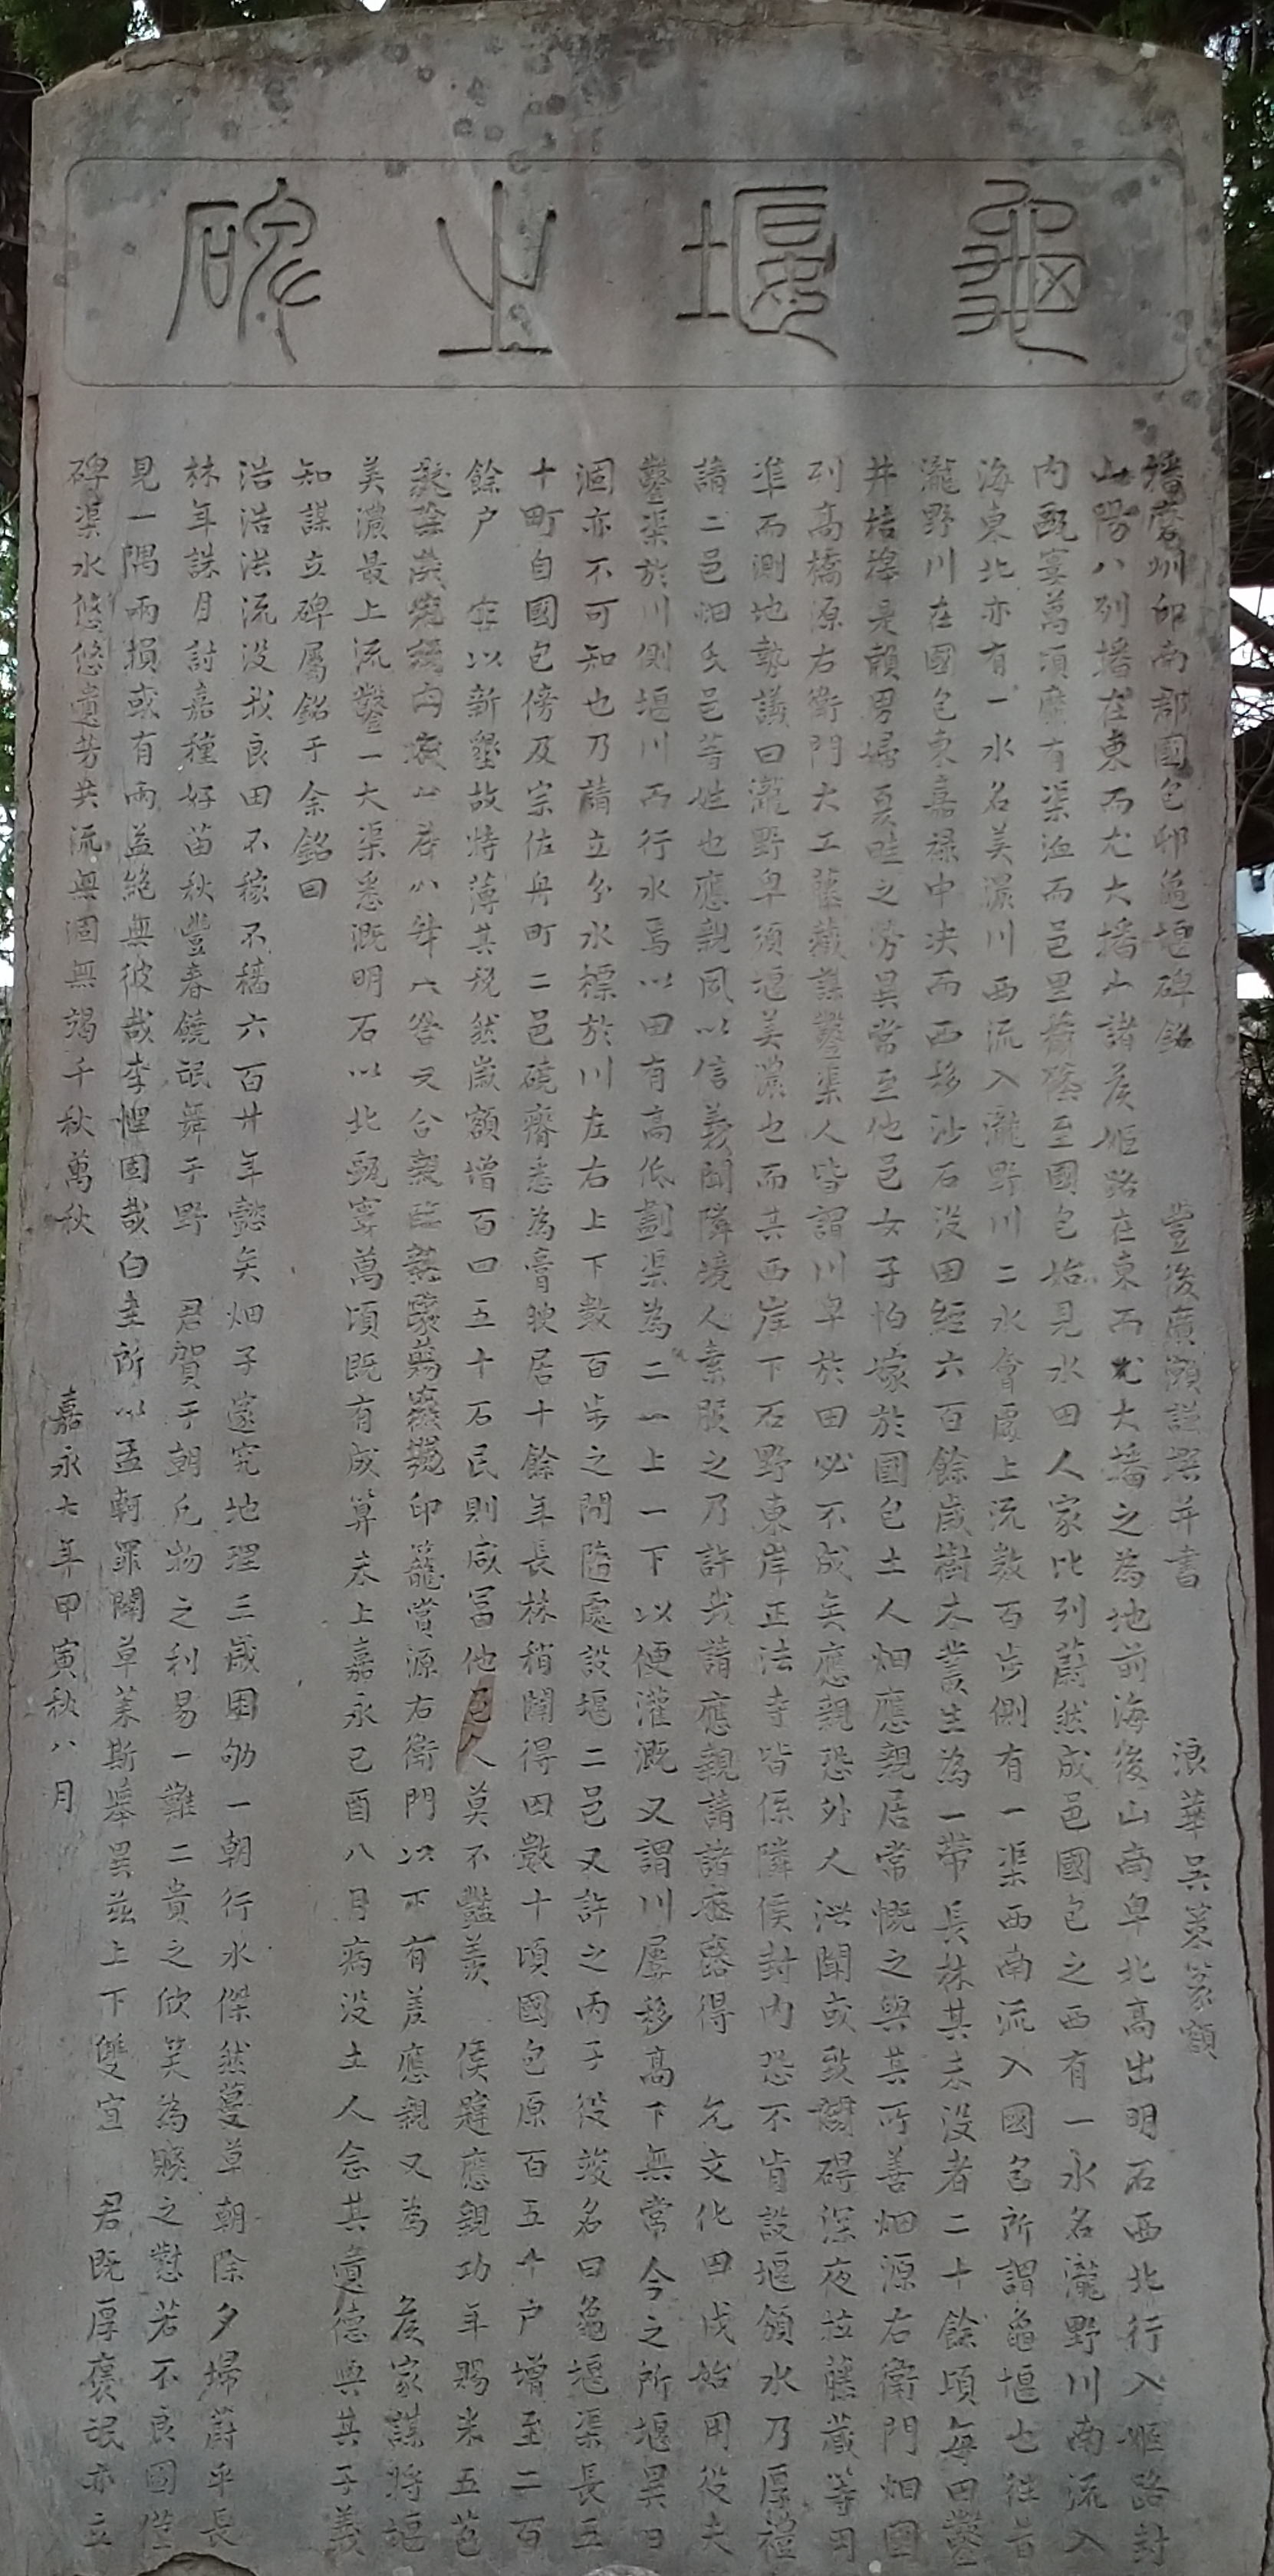 龜堰之碑
播磨州印南郡國包邨龜堰碑銘 豊後廣瀬謙撰并書 浪華呉策篆額
山陽八列播在東而尤大播山諸侯姫路在東而尤大播之為地前海後山南卑北高出明石西北行入姫路封
内甌寠萬頃靡有渠洫而邑里 至國包始見水田人家比列蔚然成邑國包之西有一水名瀧野川南流入
海東北亦有一水名美濃川西流入瀧野川二水會處上流数百步側有一渠西南流入國包所謂龜堰也往昔
瀧野川在國包東嘉禄中决而西移沙石没田經六百餘歳樹木叢生為一帶長林其未没者二十餘頃每田鑿
井桔槹是頼男婦夏畦之労異常至他邑女子怕嫁於國包土人畑應親居常慨之與其所善畑源右衛門畑國
列高橋源右衛門大工藤蔵謀鑿渠人皆謂川卑於田必不成矣應親恐外人洪聞或致 碍深夜拉藤蔵等用
準而測地勢議曰瀧野卑須堰美濃也而其西岸下石野東岸正法寺皆係隣侯封内恐不肯設堰領水乃厚禮
請二邑畑氏邑 姓也應親夙以信義聞隣境人素服之乃許我請應親請諸 得 允文化甲戌始用役夫
鑿渠於川側堰川而行水焉以田有高低劃渠為二一上一下以便灌漑又謂川屡移高下無常今之所堰異日
涸亦不可知也乃請立分水標於川左右上下数百步之間随處設堰二邑又許之丙子役竣名曰龜堰渠長五
十町自國包傍及宗佐舟町二邑磽瘠悉為膏腴居十餘年長林稍闢得田數十頃國包原百五十户增至二百
餘户 官以新墾故特薄其税然歳額增百四五十石民則咸冨他邑人莫不豔羨 侯韙應親功年賜米五苞
 印籠賞源右衛門以下有差應親又為 侯家謀将堰
美濃最上流鑿一大渠悉漑明石以北甌寠萬頃既有成算未上嘉永己酉八月病没土人念其遺德與其子義
知謀立碑屬銘于余銘曰
浩浩洪流没我良田不稼不穡六百廿年懿矣畑子邃究地理三歳困劬一朝行水傑然蔓草朝除夕掃蔚乎長
林年誅月討嘉種好苗秋豐春饒氓舞于野 君賀于朝凡物之利易一難二貴之欣笑為賤之懟若不良圖僅
見一隅兩損或有兩益絶無彼哉李悝固哉白圭所以孟軻罪闢草莱斯舉異茲上下雙宜 君既厚褒氓亦立
碑渠水悠悠遺芳共流無涸無竭千秋萬秋
嘉永七年甲寅秋八月